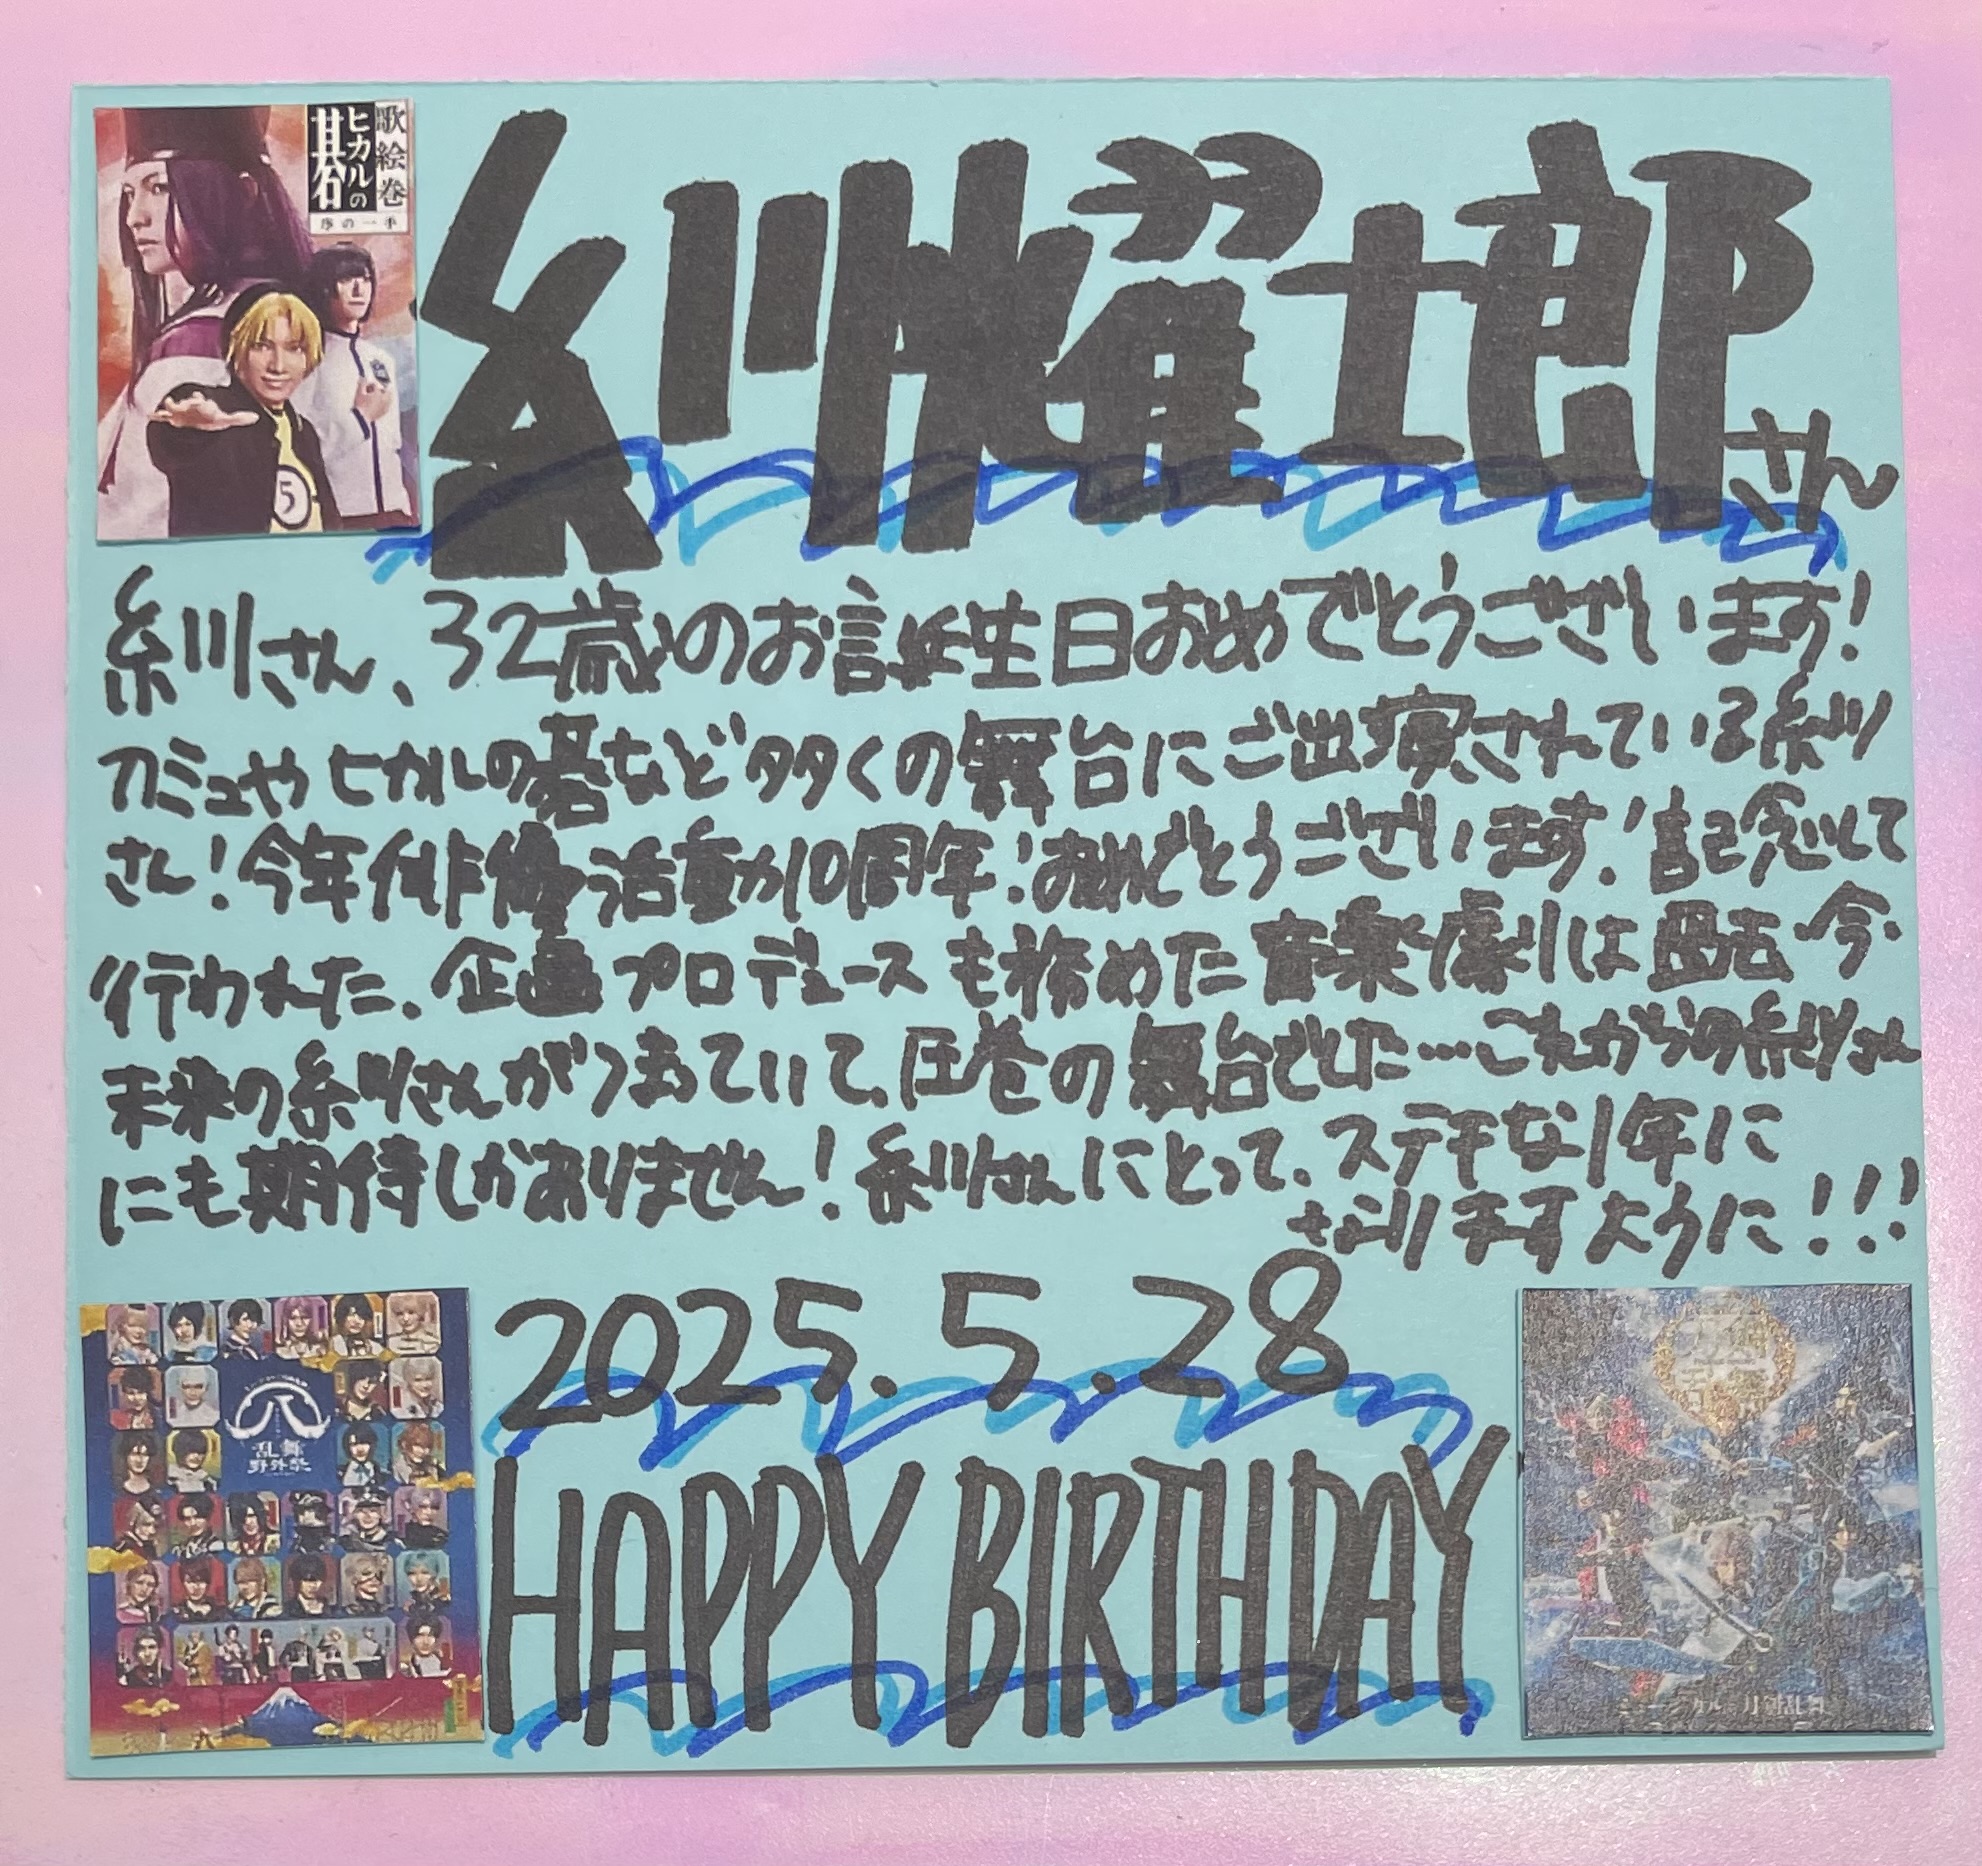 歌絵巻
ヒカルの
碁
序の一手
糸川耀士郎さん
糸川さん、32歳のお誕生日おめでとうございます!
刀ミュやヒカルの碁など多くの舞台にご出演されている糸川
さん!今年俳優活動10周年!おめでとうございます!記念して
行われた、企画プロデュースも務めた音楽劇は過去・今・
未来の糸川さんがつまっていて、圧巻の舞台でした…これからの糸川さん
にも期待しかありません!糸川さんにとって、ステキな1年に
なりますように!!!
2025.5.28
HAPPY BIRTHDAY
八
乱舞
野外祭
ミュージカル『刀剣乱舞』